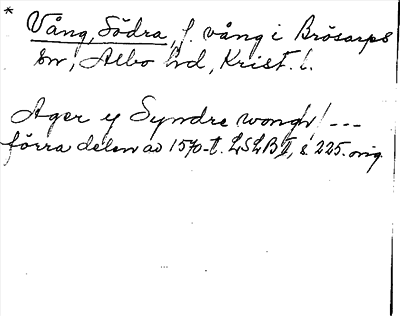 * Vång, Södra, f. vång i Brösarps
sn, Albo hd, Krist. l.
Ager y Syndre wongh/ ---
förra delen av 1570-t. LSLB II, s. 225. orig.